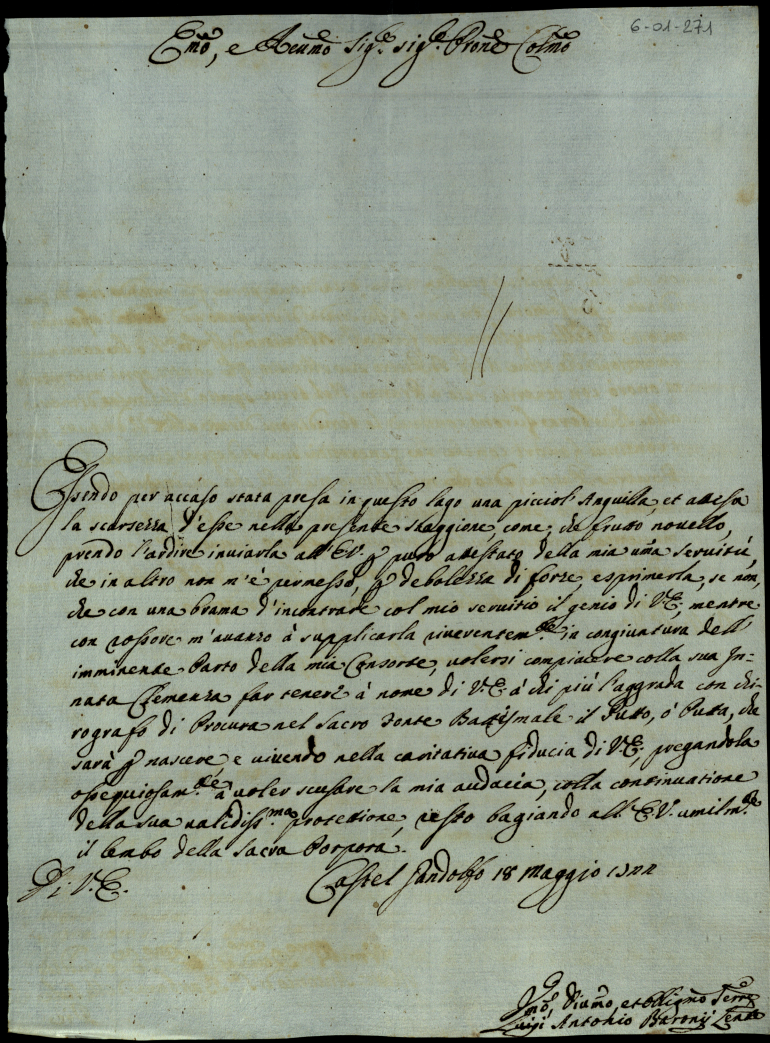 6-01-271
Em̃o, e Reum̃o Sig.r Sig.r Pron̄e Colm̃o
Essendo per accaso stata presa in questo lago una picciol' Anguilla, et attesa
la scarsezza d'esse nella presente staggione, come, che frutto novello,
prendo l'ardire inuiarla all'E.V. p puro attestato della mia um̃a seruitù,
che in altro non m'è permesso, p debolezza di forze, esprimerla, se non,
che con una brama d'incontrare col mio seruitio il genio di V.E., mentre
con rossore m'auanzo à supplicarla riuerentem.te, in congiuntura dell'
imminente Parto della mia Consorte, uolersi compiacere colla sua In=
nata Clemenza far tenere à nome di V.E. à chi più l'aggrada con chi=
rografo di Procura nel Sacro Fonte Battismale il Putto, ò Putta, che
sarà p nascere, e viuendo nella caritatiua fiducia di V.E., pregandola
ossequiosam.te à uoler scusare la mia audacia, colla continuatione
della sua ualidiss.ma protettione, resto bagiando all'E.V. umilm.te
il lembo della Sacra Porpora.
Di V.E.
Castel Gandolfo 18 Maggio 1722
Um̃o, Diuõmo, et obligm̃o Serre
Luigi Antonio Baronij